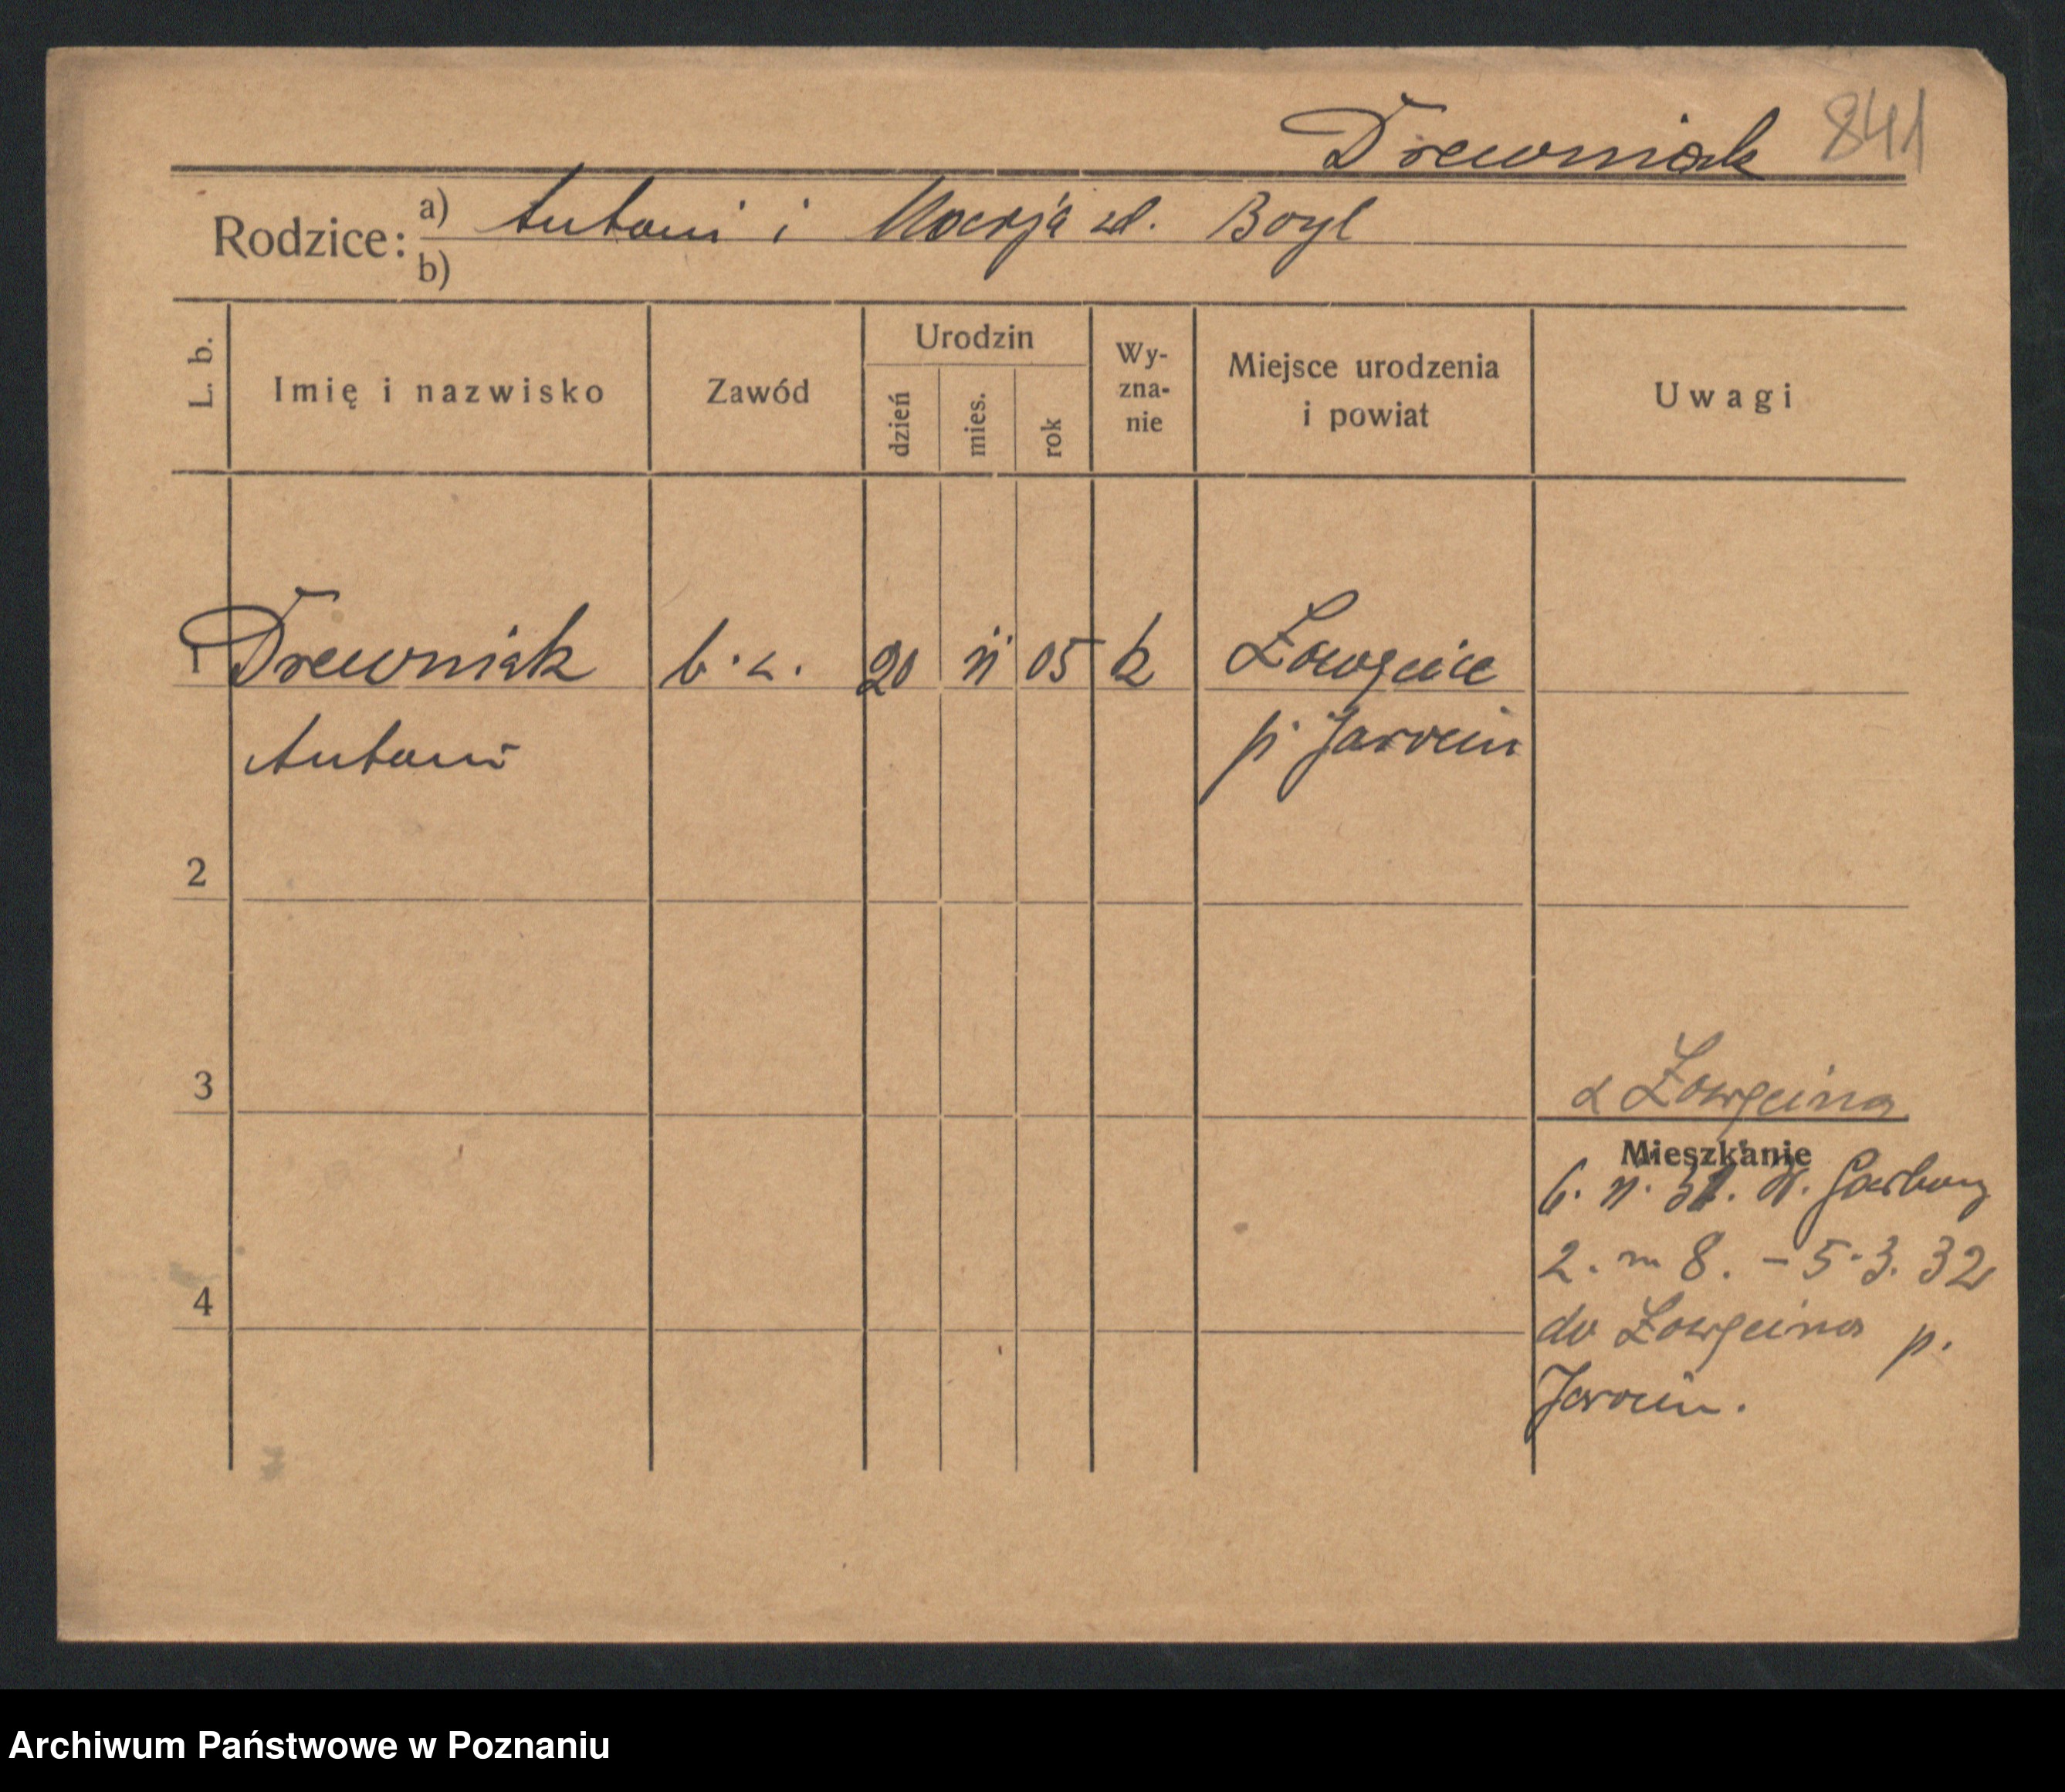 Drewniak 841
Rodzice: a) Antoni i Marja zd. Bryl
b)
L. b. Imię i nazwisko Zawód Urodzin dzień mies. rok Wy-zna-nie Miejsce urodzenia i powiat Uwagi
1 Drewniak b. z. 20 11 05 k Łowęcice
Antoni p. Jarocin
2
3
z Łowęcina
Mieszkanie
6. 11. 31. Garbary
2. m 8. - 5.3.32
4
do Łowęcina p.
Jarocin.
Archiwum Państwowe w Poznaniu